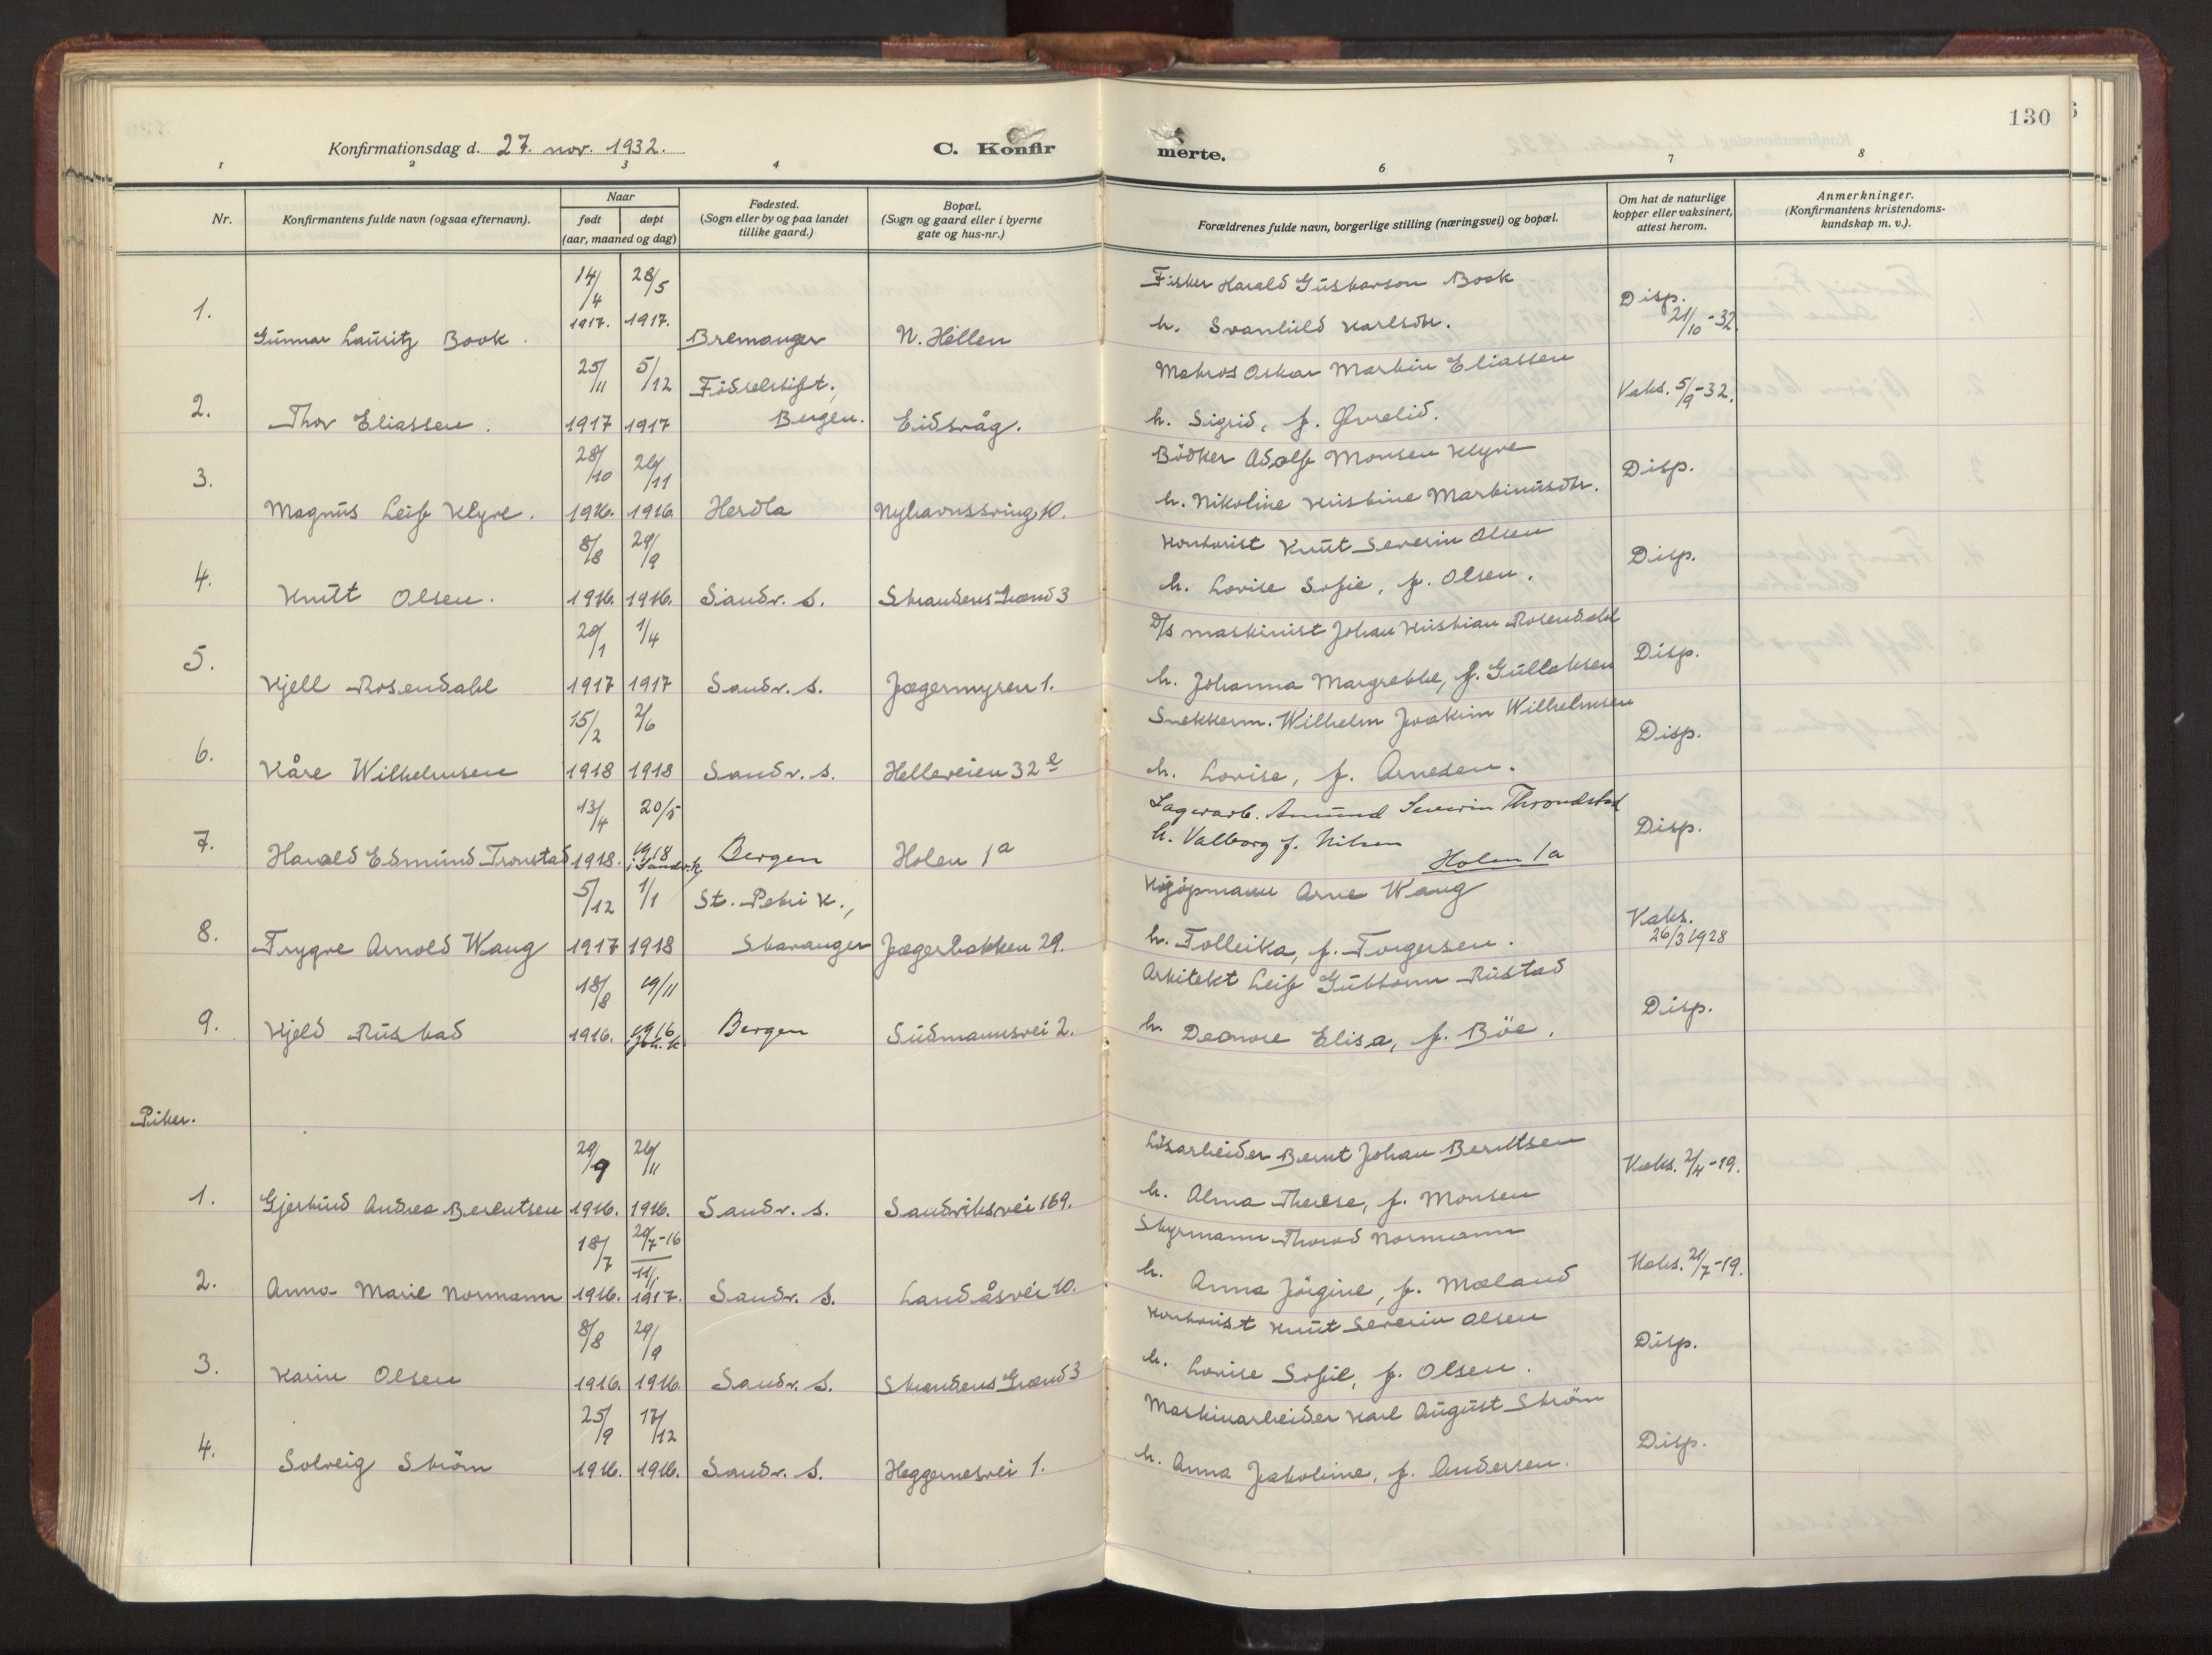 130
Konfirmationsdag d. 27. nov. 1932.
C. Konfir
merte.
1 2 3 4 6 7 8
Nr.
Konfirmantens fulde navn (ogsaa efternavn).
Naar
født døpt
(aar, maaned og dag)
Fødested.
(Sogn eller by og paa landet
tillike gaard.)
Bopæl.
(Sogn og gaard eller i byerne
gate og hus-nr.)
Forældrenes fulde navn, borgerlige stilling (næringsvei) og bopæl.
Om hat de naturlige
kopper eller vaksinert,
attest herom.
Anmerkninger.
(Konfirmantens kristendoms-
kundskap m. v.).
14/4 28/5 Fisker Harald Gustavson Book
1. 1917. 1917. Disp. 21/10-32.
Gunnar Lauritz Book. Bremanger N. Hellen h. Svanhild Karlsdtr.
25/11 5/12 Födselsstift., Matros Oskar Martin Eliassen
2. Thor Eliassen. 1917 1917 Bergen. Eidsvåg. h. Sigrid, f. Øvrelid. Vaks. 5/9-32.
28/10 26/11 Bödker Adolf Monsen Klyve
3. Magnus Leif Klyve. 1916. 1916. Herdla Nyhavnssving 10. h. Nikoline Kristine Martinusdtr. Disp.
8/8 29/9 Kontorist Knut Severin Olsen
4. Knut Olsen. 1916. 1916. Sandv. s. Strandens Grend 3 h. Lovise Sofie, f. Olsen. Disp.
20/1 1/4 D/s maskinist Johan Kristian Rosendahl
5. Kjell Rosendahl 1917 1917 Sandv. s. Jægermyren 1. h. Johanna Margrethe, f. Gullaksen Disp.
15/2 2/6 Snekkerm. Wilhelm Joakim Wilhelmsen
6. Kåre Wilhelmsen 1918 1918 Sandv. s. Helleveien 32 e h. Lovise, f. Arnesen. Disp.
13/4 20/5 Lagerarb. Amund Severin Throndstad
7. Harald Edmund Tronstad 1918. 1918 i Sandv. k. Bergen Holen 1a h. Valborg f. Nilsen Holen 1a Disp.
5/12 1/1 St. Petri K., Kjöpmann Arne Waag
8. Trygve Arnold Waag 1917 1918 Stavanger Jægerbakken 29. h. Tolleika, f. Torgersen. Vaks. 26/3 1928
18/8 19/11 Arkitekt Leif Guttorm Rustad
9. Kjeld Rustad 1916. 1916 Joh. k. Bergen Sudmannsvei 2. h. Deonore Elisa, f. Böe. Disp.
Piker.
29/9 26/11 Lösarbeider Bernt Johan Berntsen
1. Gjertrud Andrea Berentsen 1916. 1916. Sandv. s. Sandviksvei 169. h. Alma Therese, f. Monsen Vaks. 2/4-19.
18/7 29/7-16 11/1 Styrmann Thorod Normann
2. Anna Marie Normann 1916. 1917. Sandv. s. Landåsvei 10. h. Anna Jörgine, f. Mæland Vaks. 21/7-19.
8/8 29/9 Kontorist Knut Severin Olsen
3. Karin Olsen 1916. 1916. Sandv. s. Strandens Grend 3 h. Lovise Sofie, f. Olsen. Disp.
25/9 17/12 Maskinarbeider Karl August Ström
4. Solveig Ström 1916. 1916. Sandv. s. Heggernesvei 1. h. Anna Jakobine, f. Andersen. Disp.